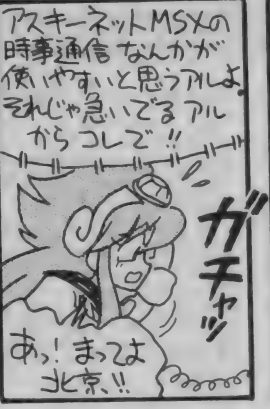 アスキーネットMSXの
時事通信なんかが
使いやすいと思うアルよ。
それじゃ急いでるアル
からコレで!!
ガチャッ
あっ!まってよ
北京!!